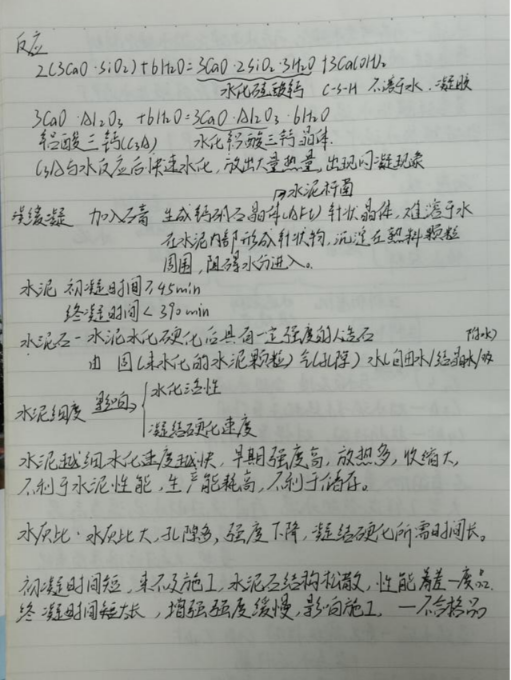 反应
2(3CaO·SiO₂)+6H₂O=3CaO·2SiO₂·3H₂O+3Ca(OH)₂
水化硅酸钙 C-S-H 不溶于水、凝胶
3CaO·Al₂O₃+6H₂O=3CaO·Al₂O₃·6H₂O
铝酸三钙(C₃A) 水化铝酸三钙晶体.
C₃A与水反应后快速水化，放出大量热量，出现闪凝现象
缓凝 加入石膏 生成钙矾石晶体(AFt) 针状晶体，难溶于水
在水泥内部形成针状物，沉淀在熟料颗粒
周围，阻碍水分进入。
水泥 初凝时间≮45min
终凝时间<390min
水泥石-水泥水化硬化后具有一定强度的人造石
由 固(未水化的水泥颗粒) 气(孔隙) 水(自由水/结晶水/吸附水)
水泥细度 影响 水化活性
凝结硬化速度
水泥越细水化速度越快，早期强度高，放热多，收缩大，
不利于水泥性能，生产能耗高，不利于储存。
水灰比·水灰比大，孔隙多，强度下降，凝结硬化所需时间长。
初凝时间短，来不及施工，水泥石结构松散，性能差—废品.
终凝时间长，增强强度缓慢，影响施工 —不合格品